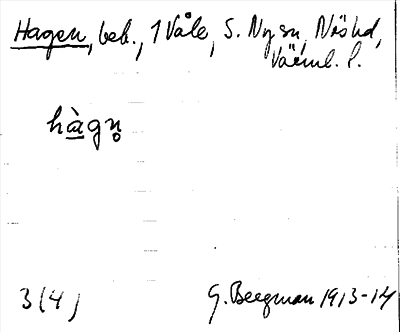 Hagen, beb., 1 Våle, S. Ny sn, Näs hd,
Värml. l.
hàgn̥
3 (4) G. Bergman 1913-14